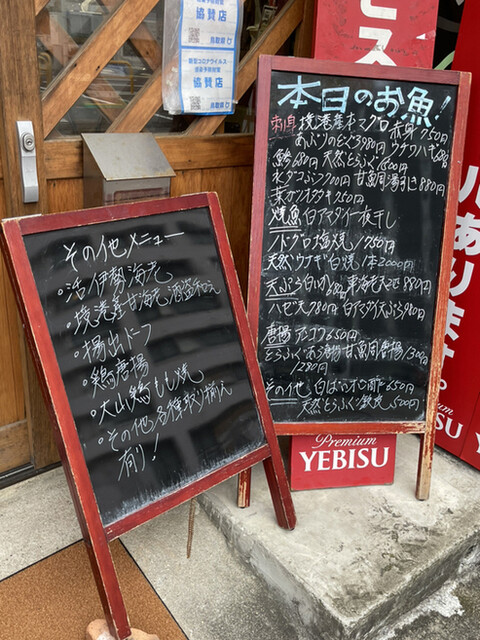 協賛店
新型コロナウイルス
感染予防対策
協賛店
鳥取県
本日のお魚!
刺身 境港産本マグロ 赤身 950円
あぶりのどぐろ980円 ウチワハギ680円
鯵680円 天然とらふぐ1500円
水ダコぶつ 700円 甘鯛湯引き880円
焼魚 白アマダイ一夜干し
ノドグロ塩焼 1950円
天然ウナギ白焼 1本2000円
天ぷら 白いか980 車海老天ぷら880円
ハゼ天780円 白アマダイ天ぷら980円
唐揚 アンコウ650円
とらふぐあら唐揚 甘鯛唐揚 1300円
1280円
その他 白ばいポン酢 650円
天然とらふぐ 500円
その他メニュー
・活伊勢海老
・境港産甘海老
・揚出ドーフ
・鶏唐揚
・大山鶏もも焼
・その他各種取り揃え
有り!
Premium
YEBISU
あります。
YEBISU